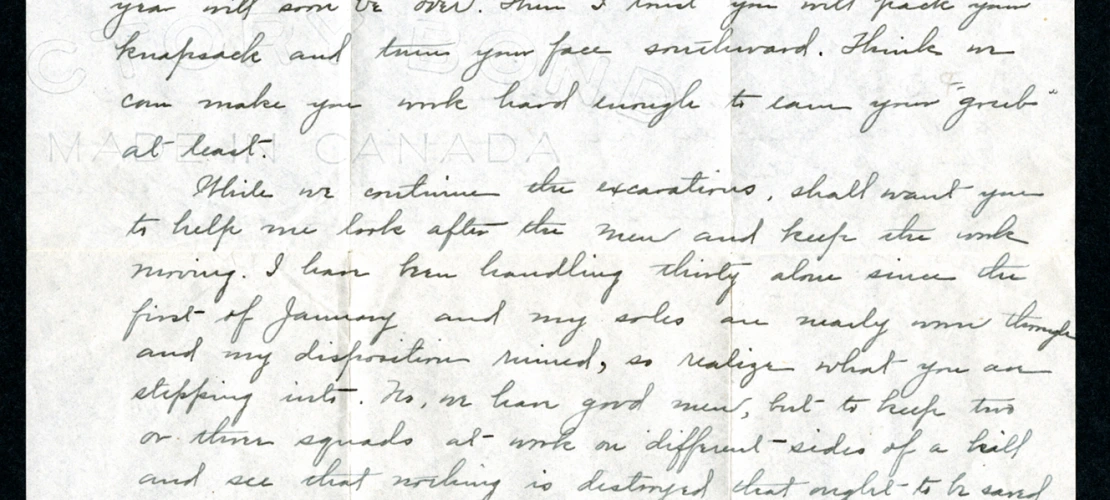 year will soon be over. Then I trust you will pack your
knapsack and turn your face southward. Think we
can make you work hard enough to earn your "grub"
at least.
While we continue the excavations, shall want you
to help me look after the men and keep the work
moving. I have been handling thirty alone since the
first of January and my soles are nearly worn through
and my disposition ruined, so realize what you are
stepping into. No, we have good men, but to keep two
or three squads at work on different sides of a hill
and see that nothing is destroyed that ought to be saved
C TORY BOND
MADE IN CANADA